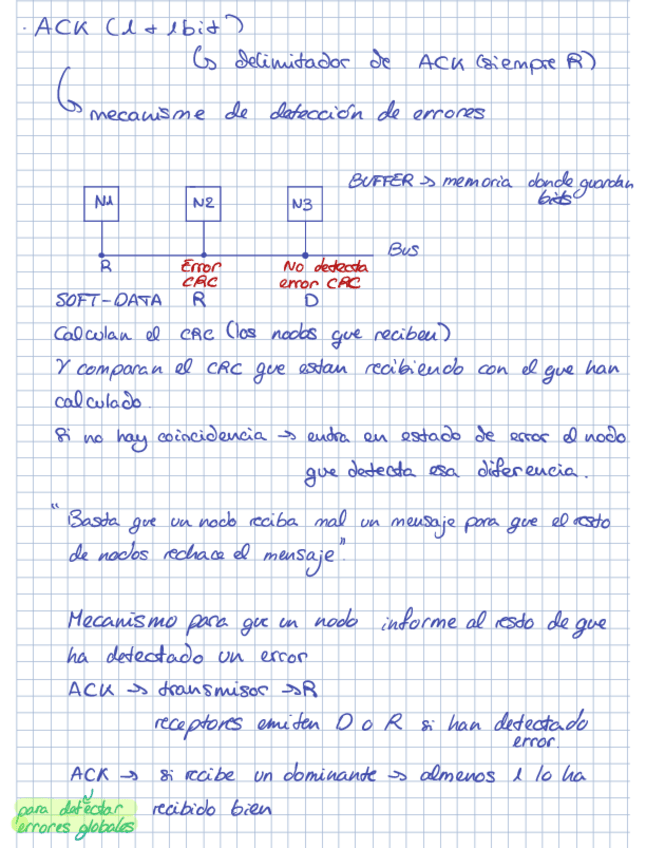 · ACK (1 + 1bit)
↳ delimitador de ACK (siempre R)
↳ mecanisme de detección de errores
BUFFER → memoria donde guardan
bits
N1 N2 N3
Bus
R Error No detecta
CRC error CRC
SOFT-DATA R D
Calculan el CRC (los nodos que reciben)
Y comparan el CRC que estan recibiendo con el que han
calculado.
Si no hay coincidencia → entra en estado de error el nodo
que detecta esa diferencia.
"Basta que un nodo reciba mal un mensaje para que el resto
de nodos rechace el mensaje".
Mecanismo para que un nodo informe al resto de que
ha detectado un error
ACK → transmisor → R
receptores emiten D o R si han detectado
error.
ACK → si recibe un dominante → almenos 1 lo ha
para detectar recibido bien
errores globales